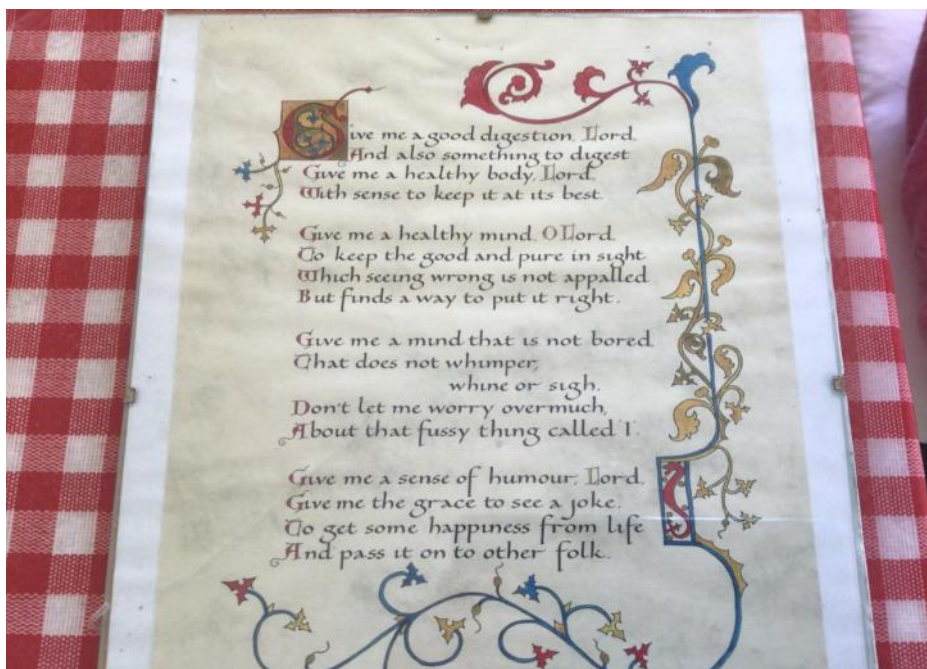 Give me a good digestion, Lord
And also something to digest
Give me a healthy body, Lord
With sense to keep it at its best.
Give me a healthy mind, O Lord
To keep the good and pure in sight
Which seeing wrong is not appalled
But finds a way to put it right.
Give me a mind that is not bored
That does not whimper,
whine or sigh.
Don't let me worry overmuch,
About that fussy thing called 'I'.
Give me a sense of humour, Lord,
Give me the grace to see a joke.
To get some happiness from life
And pass it on to other folk.